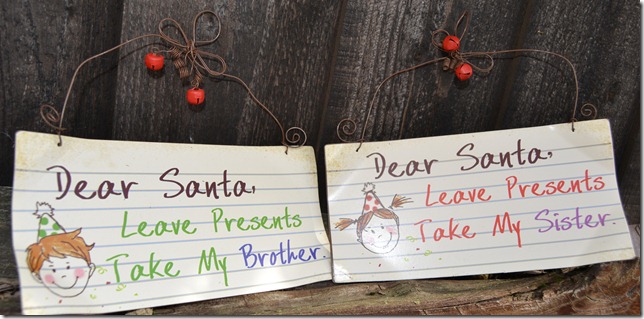 Dear Santa,
Leave Presents
Take My Brother.
Dear Santa,
Leave Presents
Take My Sister.